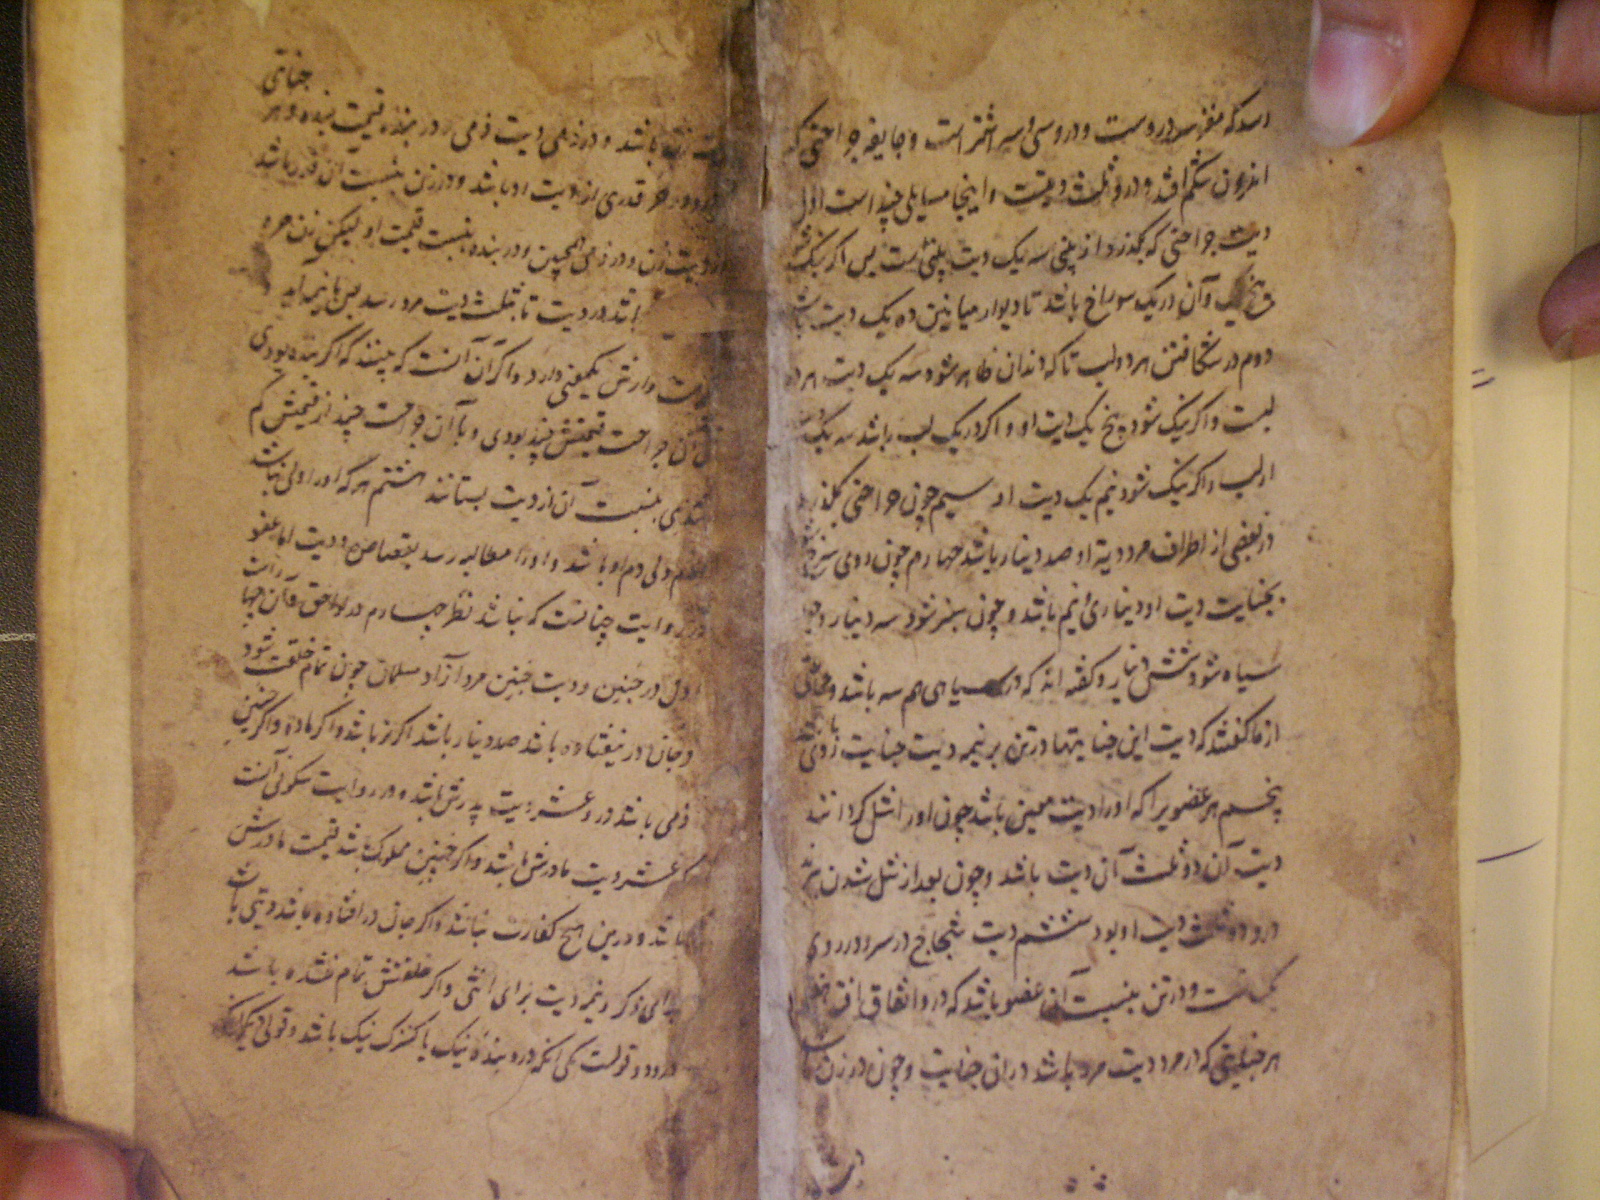 رسد که مغز سر دروست و درو سی و سه اشتر است و جایفه جراحتی که
اندرون شکم افتد و درو ثلث دیتست و اینجا مسایلی چند است اول
دیت جراحتی که بگذرد از بینی سه یک دیت بینی است پس اگر نیک شود
پنج یک و آن در یک سوراخ باشد تا دیوار میانین ده یک دیت باشد
دوم در شکافتن هر دو لب تا که دندان ظاهر شود سه یک دیت هر دو
لبست و اگر نیک شود پنج یک دیت او و اگر در یک لب باشد سه یک دیت
او لب و اگر نیک شود نیم یک دیت او سیم چون جراحتی بگذرد
در بعضی از اطراف مرد دیة او صد دینار باشد چهارم چون روی سرخ شود
بجنایت دیت او دیناری و نیم باشد و چون سبز شود سه دینار و چون
سیاه شود شش دینار و گفته اند که در سیاهی هم سه باشد و جماعتی
از ما گفتند که دیت این جنایتها در تن بر نیمه دیت جنایت باشد در روی
پنجم هر عضویرا که او را دیت معین باشد چون او را شل گردانند
دیت آن دو ثلث آن دیت باشد و چون بعد از شل شدن ببرند
درو ثلث دیت او بود ششم دیت شجاج در سر و در روی
یکیست و در تن بنسبت آن عضو باشد که درو اتفاق افتد هفتم
هر جنایتی که در مرد دیت مرد باشد در آن جنایت و چون در زن باشد
جنایتی
دیت زن باشد و در ذمی دیت ذمی و در بنده قیمت بنده و هر
درو در حر قدری از دیت او باشد و در زن بنسبت آن قدر باشد
از دیت زن و در ذمی همچنین و در بنده بنسبت قیمت او لیکن زن حره
باشد در دیت تا بثلث دیت مرد رسد پس با نیمه آید
است و ارش یکمعنی دارد و اگر آن آنست که ببینند که اگر بنده بودی
بی آن جراحت قیمتش چند بودی و با آن جراحت چند از قیمتش کم
شدی بنسبت آن از دیت بستانند هشتم هر که او را ولی نباشد
امام ولی دم او باشد و او را مطالبه رسد بقصاص و دیت اما عفو
در روایت چنانست که نباشد نظر چهارم در لواحق و آن چهار است
اول در جنین و دیت جنین مرد آزاد مسلمان چون تمام خلقت شود
و جان در نیفتاده باشد صد دینار باشد اگر نر باشد و اگر ماده و اگر جنین
ذمی باشد درو عشر دیت پدرش باشد و در روایت سکونی آنست
که عشر دیت مادرش باشد و اگر جنین مملوک باشد قیمت مادرش
باشد و درین هیچ کفارت نباشد و اگر جان در افتاده باشد دیتی باشد
برای ذکر و نیمه دیت برای انثی و اگر خلقتش تمام نشده باشد
درو دو قولست یکی آنکه درو بنده نیک یا کنیزک نیک باشد و قولی دیگر آنکه